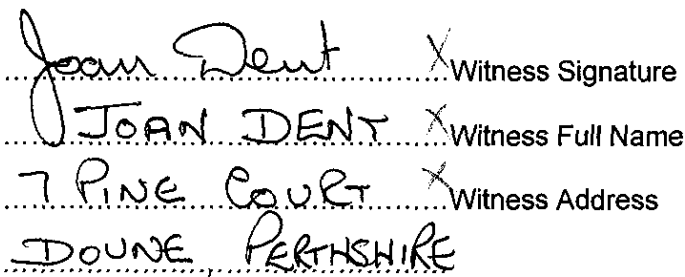 Joan Dent X Witness Signature
JOAN DENT X Witness Full Name
7 PINE COURT X Witness Address
DOUNE PERTHSHIRE